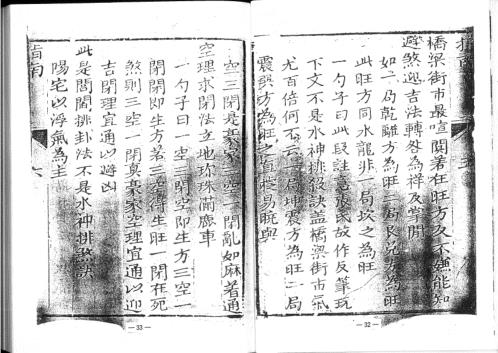 橋梁街市最喧闐若在旺方久不
避煞迎吉法轉咎為祥反掌間
如二局乾離方為旺三局艮兌方為旺
此旺方同水龍非一局坎之為旺
一勺子曰此段註
下文不是水神排殺訣蓋橋梁街市氣
尤百倍何不云一局坤震方為旺二局
震巽方為旺之直捷易曉與
空三閉是豪家三空一閉亂如麻著通
空理求閉法立地珍珠滿鹿車
一勺子曰一空三閉空即生方三空一
閉閉即生方若三空得生旺一閉在死
煞則三空一閉莫豪家空理宜通以迎
吉閉理宜通以避凶
此是閻閭排卦法不是水神排煞訣
陽宅以浮氣為主
指南
六
— 33 —
— 32 —